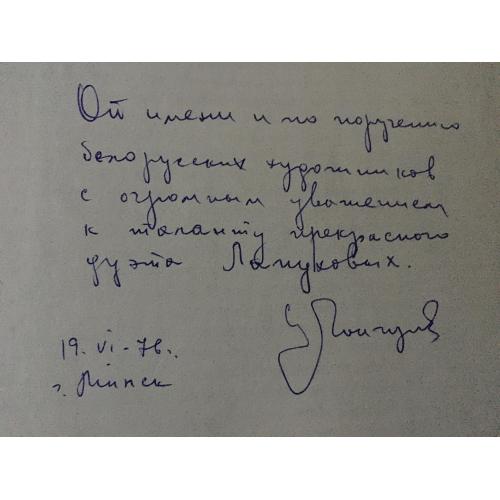 От имени и по поручению
белорусских художников
с огромным уважением
к таланту прекрасного
дуэта
19. VI - 76.
г. Минск